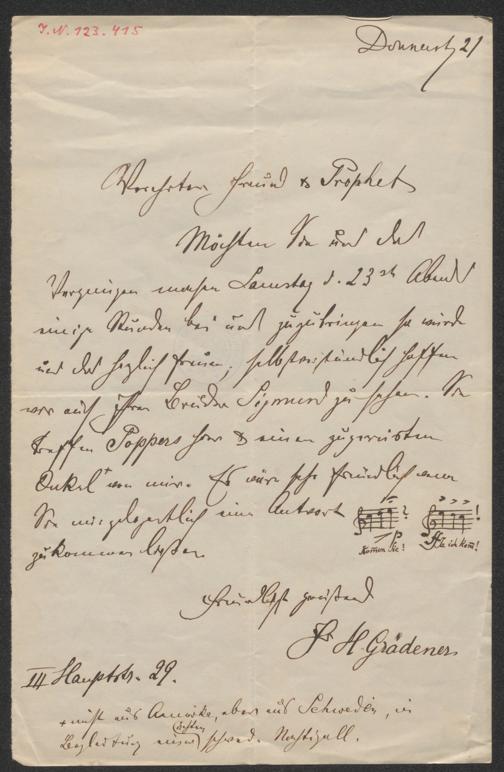 I.N. 123.415
Donnerst. 21
Verehrter Freund & Prophet
Möchten Sie uns das
Vergnügen machen Samstag d. 23st Abend
einige Stunden bei uns zuzubringen so würde
uns das herzlich freuen, selbstverständlich hoffen
wir auch Ihren Bruder Sigmund zu sehen. Sie
treffen Poppers hier & einen zugereisten
Onkel+ von mir. Es wäre sehr freundlich wenn
Sie mir gelegentlich eine Antwort
Kommen Sie! Ja ich kom̄!
zukommen ließen
Freundlichst grüßend
H. Grädener
III Hauptstr. 29.
+ nicht aus Amerika, aber aus Schweden, in
Begleitung einer echten schwed. Nachtigall.